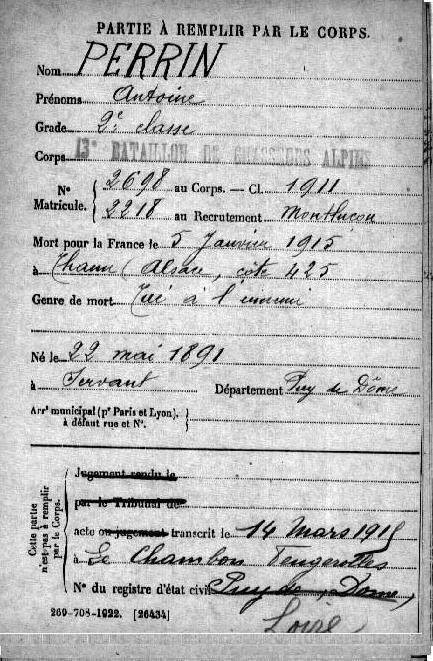 PARTIE À REMPLIR PAR LE CORPS.
Nom PERRIN
Prénoms Antoine
Grade 2e classe
Corps 13e BATAILLON DE CHASSEURS ALPINS
No Matricule. { 2698 au Corps. — Cl. 1911
2218 au Recrutement Montluçon
Mort pour la France le 5 Janvier 1915
à Thann (Alsace, côte 425
Genre de mort Tué à l'ennemi
Né le 22 mai 1891
à Servant Département Puy de Dôme
Arrt municipal (pr Paris et Lyon), à défaut rue et No. {
Cette partie n'est pas à remplir par le Corps.
Jugement rendu le
par le Tribunal de
acte ou jugement transcrit le 14 Mars 1915
à Le Chambon Feugerolles
No du registre d'état civil Puy de Dôme,
Loire
269-708-1922. [26434]